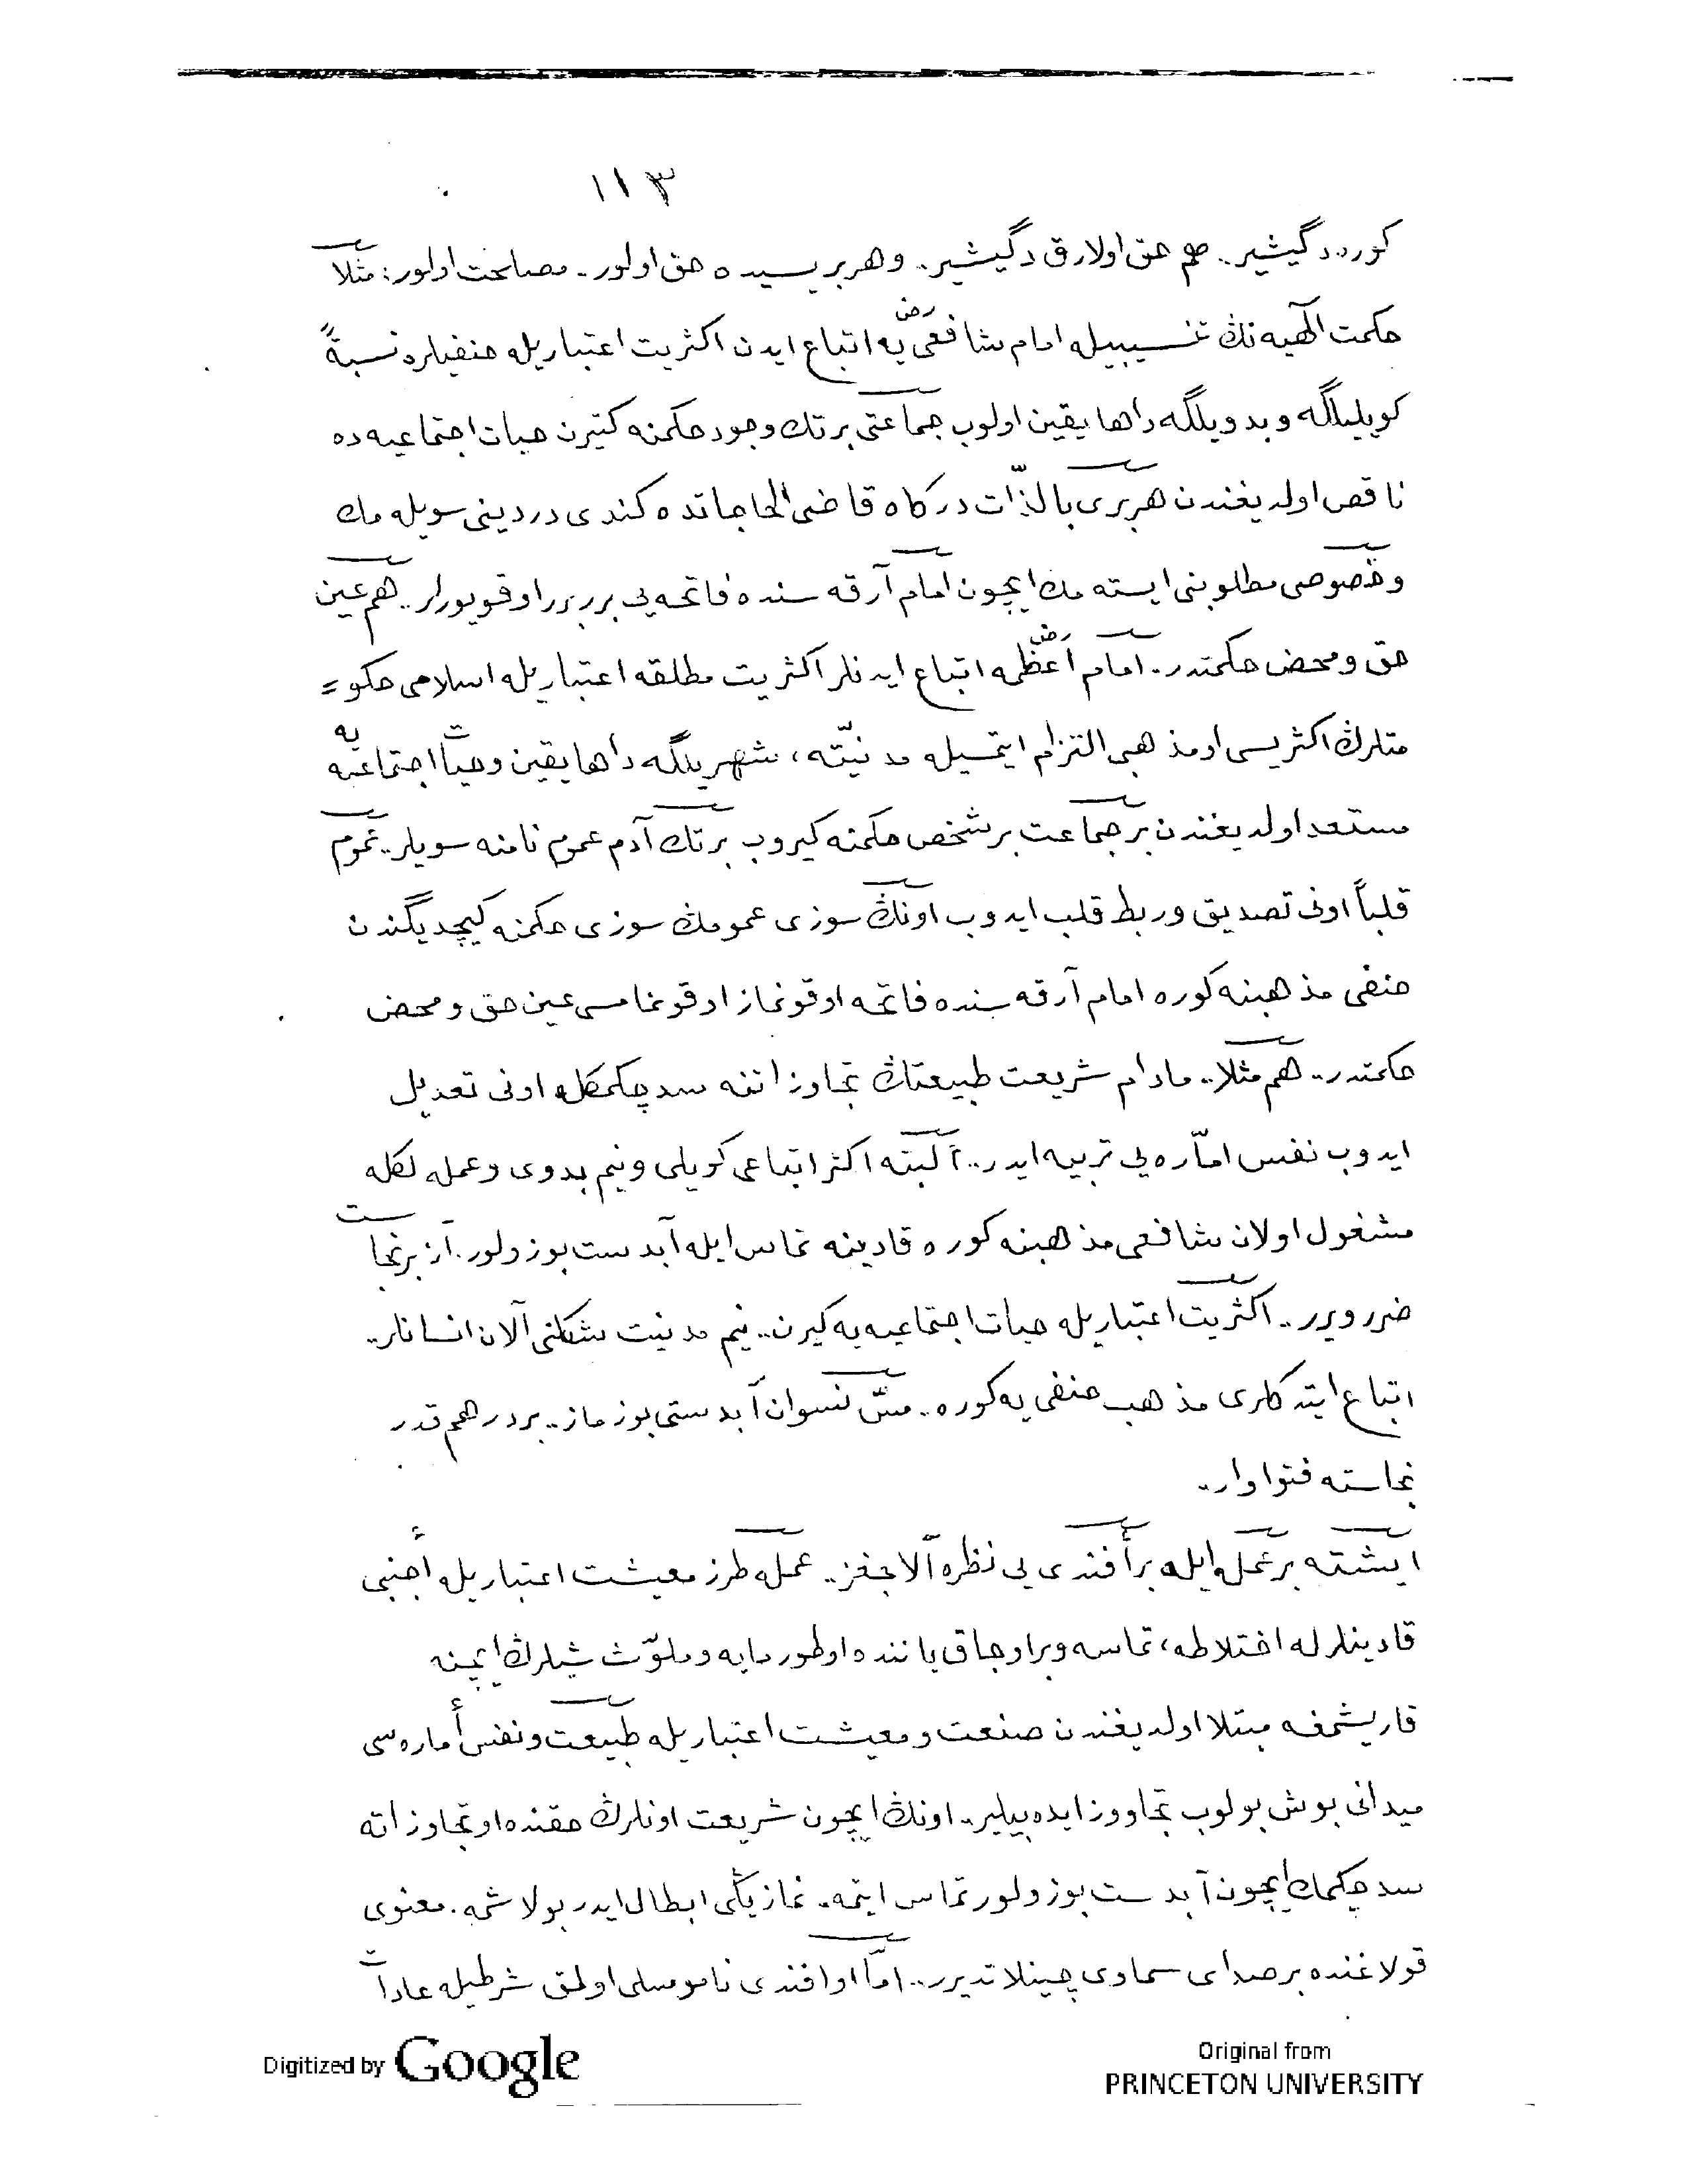 ١١٣
كوره‌ دگيشير.. هم حق اولارق دگيشير.. وهر بريسيده حق اولور. مصلحت اولور: مثلا
حكمت الٰهيه نڭ تنسيبيله امام شافعی رض يه اتباع ايدن اكثريت اعتباريله حنفيلره نسبةً
كويليلگه و بدويلگه داها يقين اولوب جماعتی بر تك وجود حكمنه كتيرن حيات اجتماعيه ده
ناقص اولديغندن هر بری بالذّات دركاه قاضی الحاجاتده كندی دردينی سويله مك
وخصوصی مطلوبنی ايسته مك ايچون امام آرقه سنده فاتحه يی برر برر اوقويورلر.. هم عين
حق و محض حكمتدر.. امام اعظمه رض اتباع ايدنلر اكثريت مطلقه اعتباريله اسلامی حكو=
متلرڭ اكثريسی او مذهبی التزام ايتمسيله مدنيّته، شهريلگه داها يقين وحيات اجتماعيه يه
مستعد اولديغندن بر جماعت بر شخص حكمنه كيروب بر تك آدم عموم نامنه سويلر.. عموم
قلباً اونی تصديق و ربط قلب ايدوب اونڭ سوزی عمومڭ سوزی حكمنه كيچديگندن
حنفی مذهبنه كوره امام آرقه سنده فاتحه اوقونماز اوقونمامسی عين حق و محض
حكمتدر.. هم مثلا.. مادام شريعت طبيعتڭ تجاوزاتنه سد چكمكله اونی تعديل
ايدوب نفس امّاره يی تربيه ايدر.. ألبته اكثر اتباعی كويلی ونيم بدوی وعمله لكله
مشغول اولان شافعی مذهبنه كوره قادينه تماس ايله آبدست بوزولور. از بر نجاست
ضرر ويرر.. اكثريت اعتباريله حيات اجتماعيه يه كيرن.. نيم مدنيت شكلنی آلان انسانلر..
اتباع ايتدكلری مذهب حنفی يه كوره.. مسّ نسوان آبدستی بوزماز.. بر درهم قدر
نجاسته فتوا وار..
ايشته بر عمله ايله بر أفندی يی نظره آلاجغز.. عمله طرز معيشت اعتباريله أجنبی
قادينلرله اختلاطه، تماسه وبر اوجاق ياننده اوطورمايه وملوّث شيلرڭ ايچنه
قاريشمغه مبتلا اولديغندن صنعت ومعيشت اعتباريله طبيعت ونفس أماره سی
ميدانی بوش بولوب تجاووز ايده بيلير.. اونڭ ايچون شريعت اونلرڭ حقنده او تجاوزاته
سد چكمك ايچون آبدست بوزولور تماس ايتمه. نمازيڭی ابطال ايدر بولاشمه. معنوی
قولاغنده بر صدای سماوی چينلاتديرر.. امّا او افندی ناموسلی اولمق شرطيله عادات
Digitized by Google
Original from
PRINCETON UNIVERSITY